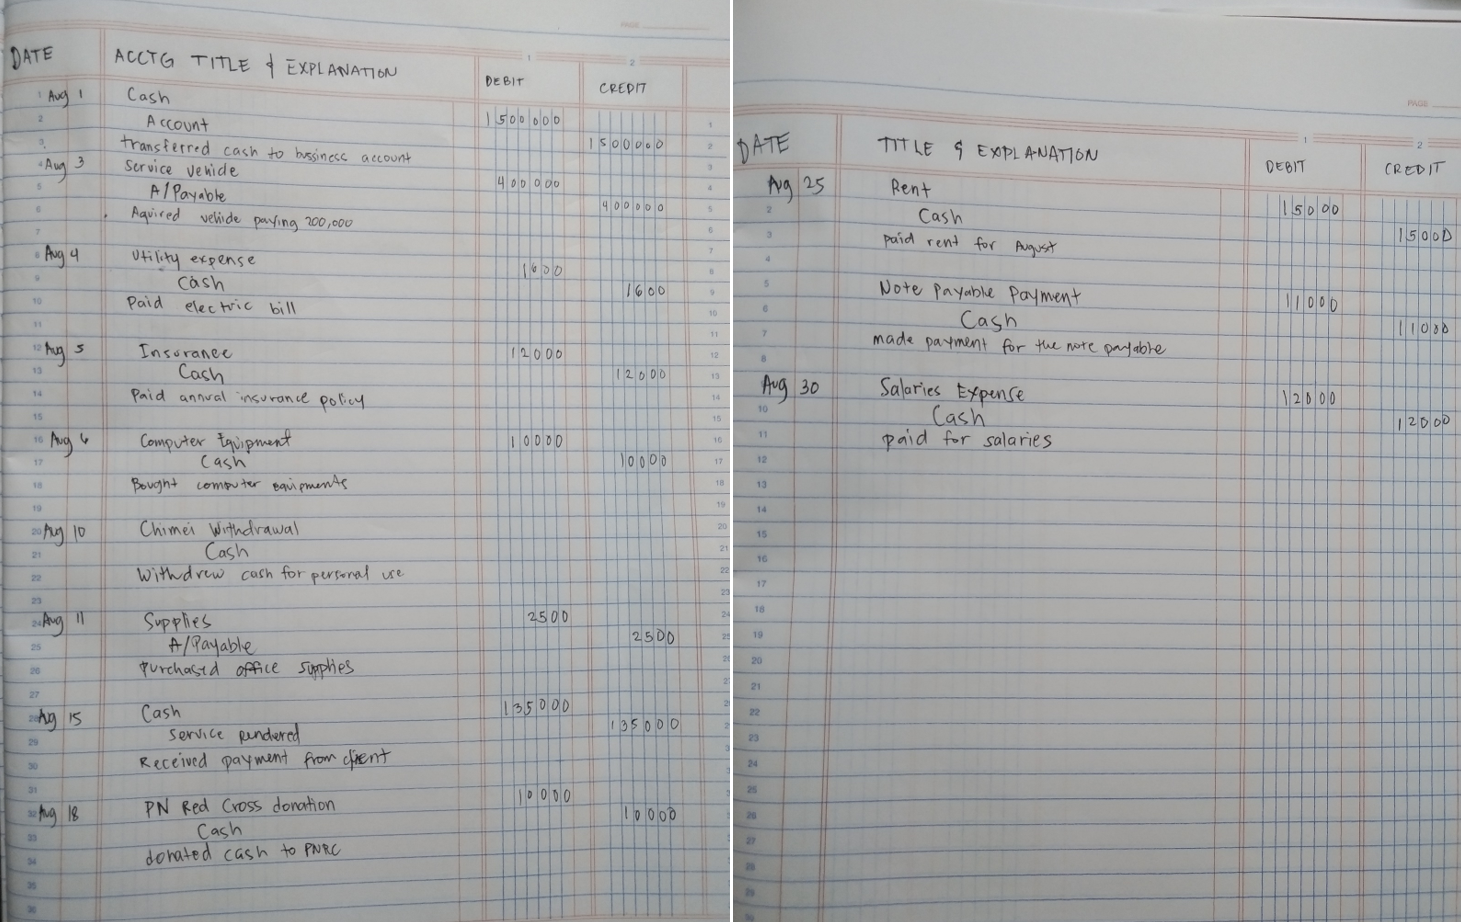 PAGE
DATE ACCTG TITLE & EXPLANATION DEBIT CREDIT
Aug 1 Cash 1500000
Account 1500000
transferred cash to bussiness account
Aug 3 Service vehicle 400000
A/Payable 400000
Aquired vehicle paying 200,000
Aug 4 Utility expense 1600
Cash 1600
Paid electric bill
Aug 5 Insurance 12000
Cash 12000
Paid annual insurance policy
Aug 6 Computer Equipment 10000
Cash 10000
Bought computer equipments
Aug 10 Chimei Withdrawal
Cash
Withdrew cash for personal use
Aug 11 Supplies 2500
A/Payable 2500
purchased office supplies
Aug 15 Cash 135000
Service rendered 135000
Received payment from client
Aug 18 PN Red Cross donation 10000
Cash 10000
donated cash to PNRC
PAGE
DATE TITLE & EXPLANATION DEBIT CREDIT
Aug 25 Rent 15000
Cash 15000
paid rent for August
Note payable payment 11000
Cash 11000
made payment for the note payable
Aug 30 Salaries Expense 12000
Cash 12000
paid for salaries